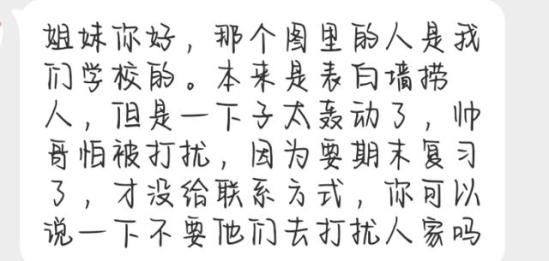 姐妹你好，那个图里的人是我
们学校的。本来是表白墙捞
人，但是一下子太轰动了，帅
哥怕被打扰，因为要期末复习
了，才没给联系方式，你可以
说一下不要他们去打扰人家吗